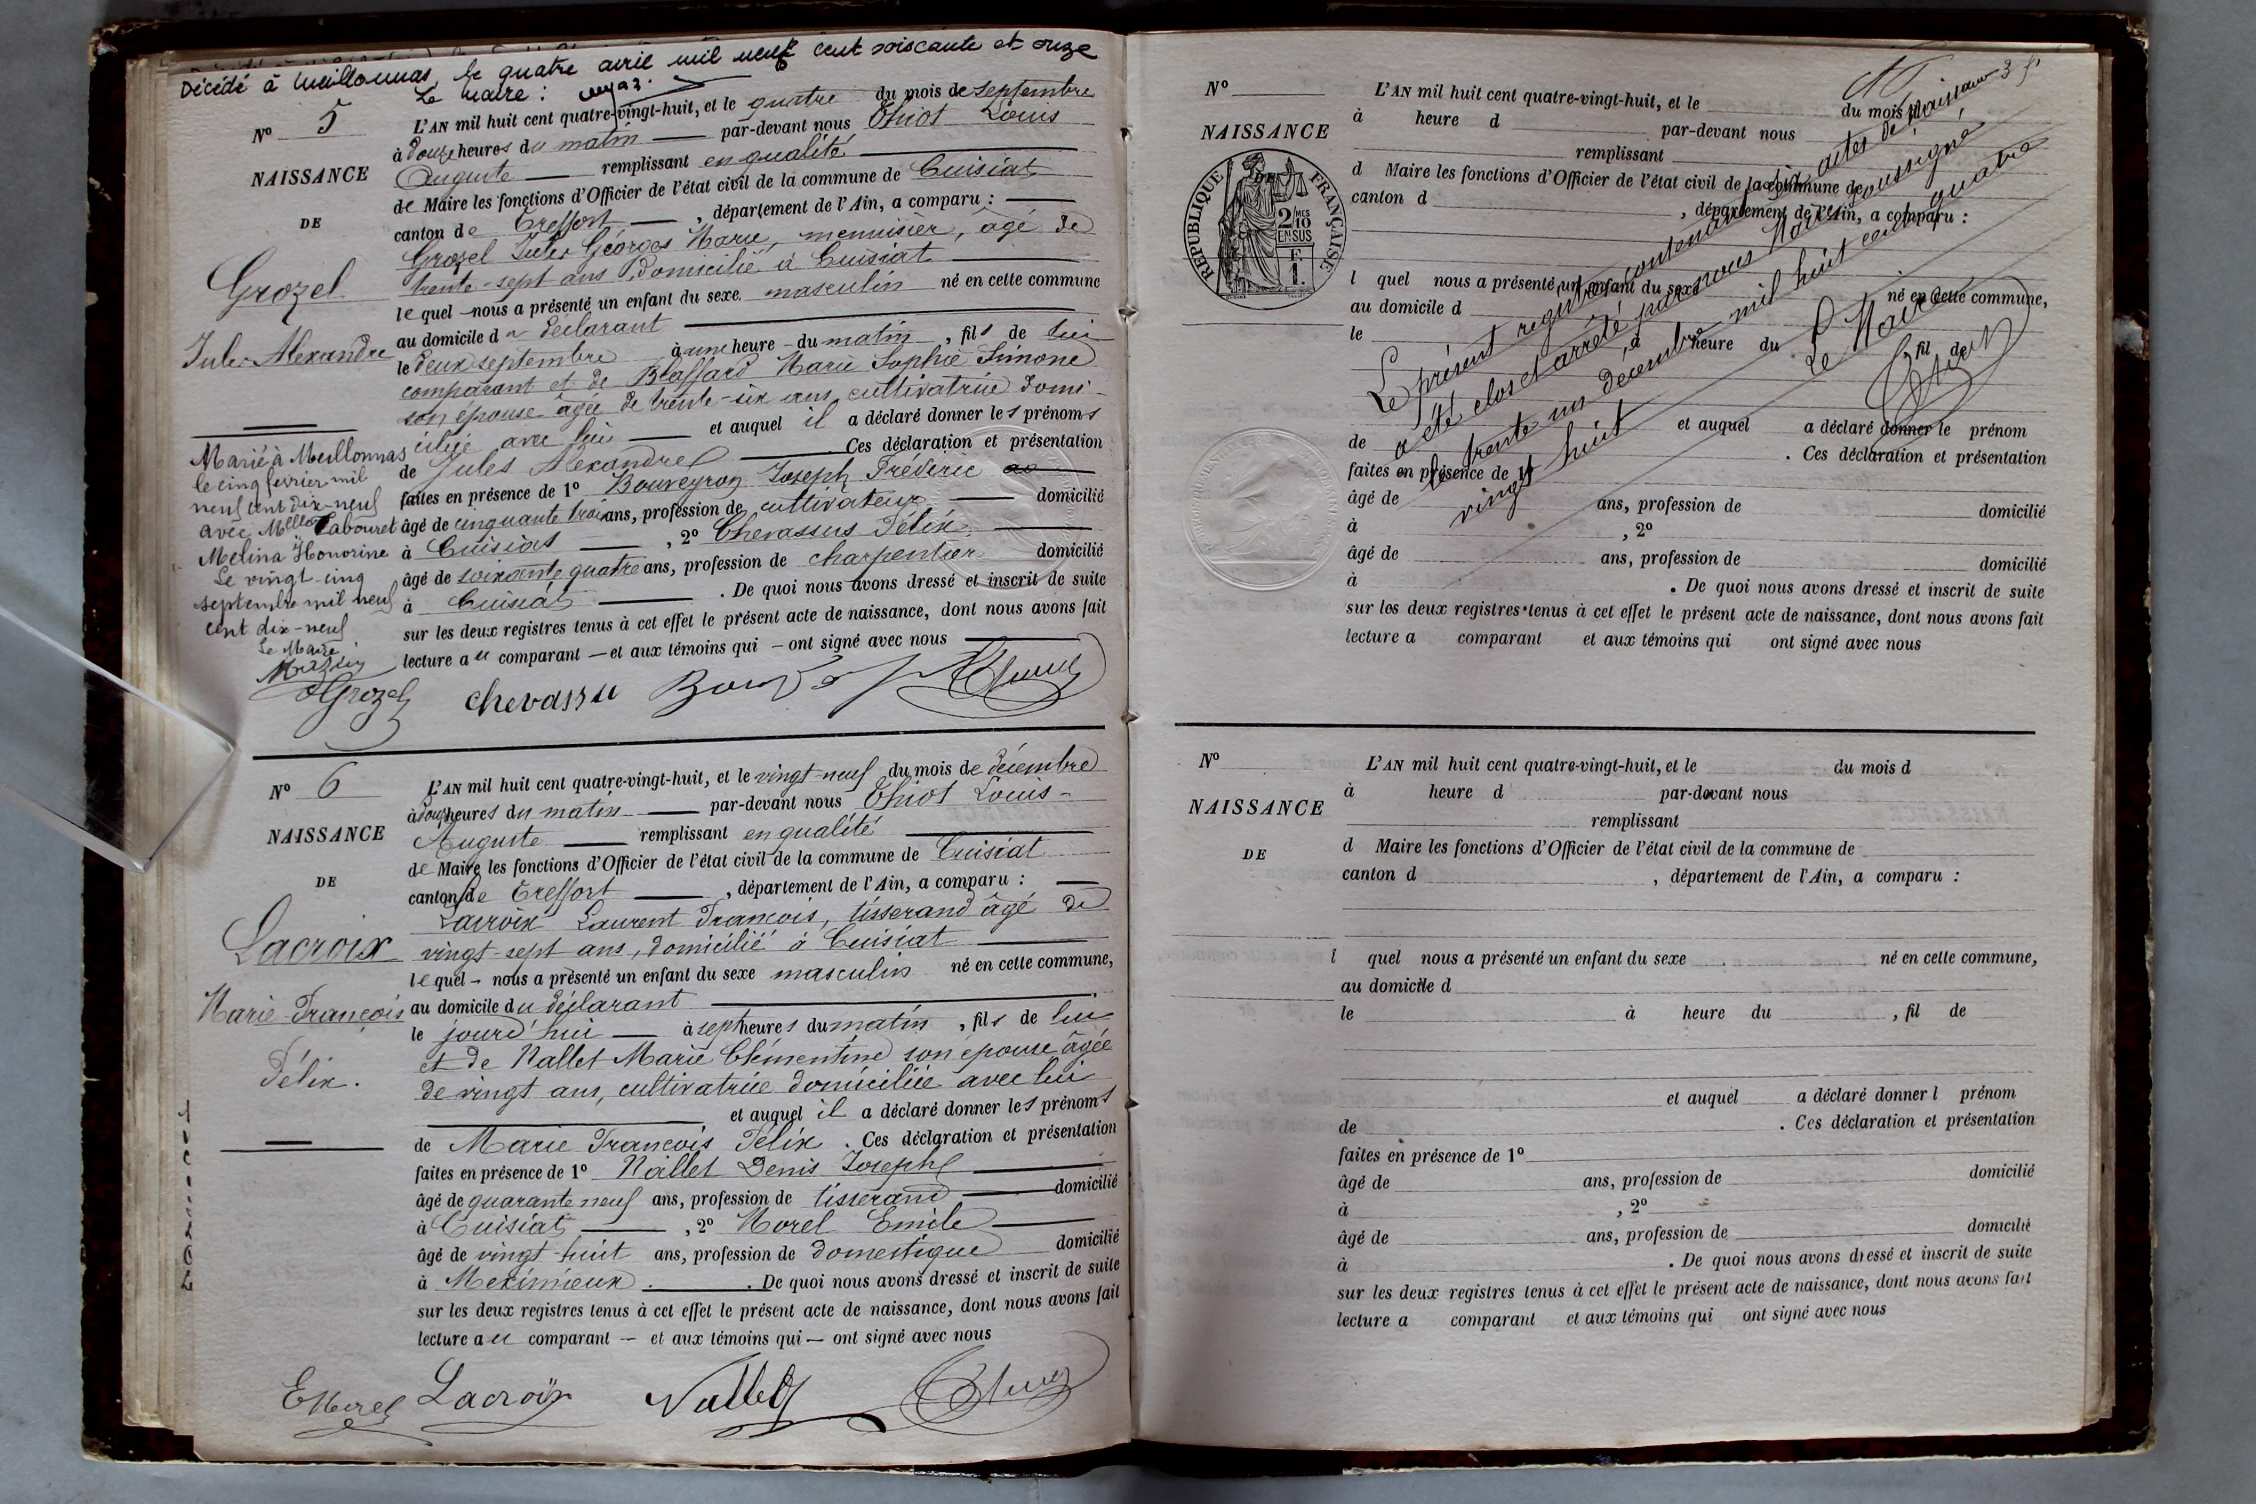 Décédé à Meillonnas, le quatre avril mil neuf cent soixante et onze
Le Maire :
N° 5
NAISSANCE
DE
Grozel
Jules Alexandre
Marié à Meillonnas
le cinq février mil
neuf cent dix-neuf
avec Melle Tabouret
Mélina Honorine
Le vingt-cinq
septembre mil neuf
cent dix-neuf
Le Maire
L'AN mil huit cent quatre-vingt-huit, et le quatre du mois de septembre
à douze heures du matin par-devant nous Thiot Louis
Auguste remplissant en qualité
de Maire les fonctions d'Officier de l'état civil de la commune de Cuisiat
canton de Treffort, département de l'Ain, a comparu :
Grozel Jules Georges Marie, menuisier, âgé de
trente-sept ans domicilié à Cuisiat
lequel nous a présenté un enfant du sexe masculin né en cette commune
au domicile du déclarant
le deux septembre à une heure du matin, fils de lui
comparant et de Blaffard Marie Sophie Simone
son épouse âgée de trente-six ans cultivatrice domi-
ciliée avec lui et auquel il a déclaré donner les prénoms
de Jules Alexandre Ces déclaration et présentation
faites en présence de 1° Bouveyron Joseph Fréderic
âgé de cinquante trois ans, profession de cultivateur domicilié
à Cuisiat, 2° Chevassus Félix
âgé de soixante quatre ans, profession de charpentier domicilié
à Cuisiat. De quoi nous avons dressé et inscrit de suite
sur les deux registres tenus à cet effet le présent acte de naissance, dont nous avons fait
lecture au comparant et aux témoins qui ont signé avec nous
Grozel chevassu
N° 6
NAISSANCE
DE
Lacroix
Marie François
Félix.
L'AN mil huit cent quatre-vingt-huit, et le vingt-neuf du mois de décembre
à douze heures du matin par-devant nous Thiot Louis-
Auguste remplissant en qualité
de Maire les fonctions d'Officier de l'état civil de la commune de Cuisiat
canton de Treffort, département de l'Ain, a comparu :
Lacroix Laurent François, tisserand âgé de
vingt-sept ans, domicilié à Cuisiat
lequel nous a présenté un enfant du sexe masculin né en cette commune,
au domicile du déclarant
le jourd'hui à sept heures du matin, fils de lui
et de Nallet Marie Clémentine son épouse âgée
de vingt ans, cultivatrice domiciliée avec lui
et auquel il a déclaré donner les prénoms
de Marie François Félix. Ces déclaration et présentation
faites en présence de 1° Nallet Denis Joseph
âgé de quarante neuf ans, profession de tisserand domicilié
à Cuisiat, 2° Morel Emile
âgé de vingt-huit ans, profession de domestique domicilié
à Meximieux. De quoi nous avons dressé et inscrit de suite
sur les deux registres tenus à cet effet le présent acte de naissance, dont nous avons fait
lecture au comparant et aux témoins qui ont signé avec nous
EMorel Lacroix Nallet
N°
NAISSANCE
DE
RÉPUBLIQUE FRANÇAISE
2 10MES
EN SUS
F.
1.
L'AN mil huit cent quatre-vingt-huit, et le du mois d
à heure d par-devant nous
remplissant
d Maire les fonctions d'Officier de l'état civil de la commune de
canton d , département de l'Ain, a comparu :
l quel nous a présenté un enfant du sexe né en cette commune,
au domicile d
le à heure du , fil de
et auquel a déclaré donner le prénom
de . Ces déclaration et présentation
faites en présence de 1°
âgé de ans, profession de domicilié
à , 2°
âgé de ans, profession de domicilié
à . De quoi nous avons dressé et inscrit de suite
sur les deux registres tenus à cet effet le présent acte de naissance, dont nous avons fait
lecture a comparant et aux témoins qui ont signé avec nous
Le présent registre contenant six actes de Naissance
a été clos et arrêté par nous Maire soussigné
le trente un décembre mil huit cent quatre
vingt huit
Le Maire
N°
NAISSANCE
DE
L'AN mil huit cent quatre-vingt-huit, et le du mois d
à heure d par-devant nous
remplissant
d Maire les fonctions d'Officier de l'état civil de la commune de
canton d , département de l'Ain, a comparu :
l quel nous a présenté un enfant du sexe né en cette commune,
au domicile d
le à heure du , fil de
et auquel a déclaré donner l prénom
de . Ces déclaration et présentation
faites en présence de 1°
âgé de ans, profession de domicilié
à , 2°
âgé de ans, profession de domicilié
à . De quoi nous avons dressé et inscrit de suite
sur les deux registres tenus à cet effet le présent acte de naissance, dont nous avons fait
lecture a comparant et aux témoins qui ont signé avec nous